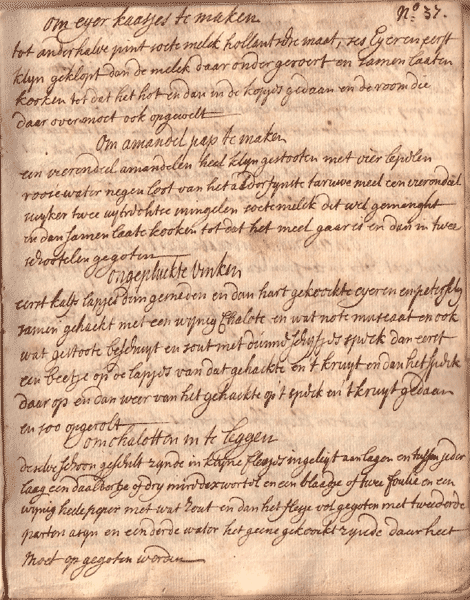 No 37.
om eyer kaasjes te maken
tot anderhalve pint soete melck hollantsche maat, ses Eyeren eerst
klyn geklopt dan de melck daar onder geroert en samen laaten
kooken tot dat het hot en dan in de kopjes gedaan en de room die
daar over moet ook opgewelt
Om amandel pap te maken
een vierendeel amandelen heel klyn gestooten met vier lepelen
roose water negen loot van het alderfynste taruwe meel een vierendeel
suyker twee uytrechtse mingelen soete melck dit wel gemenght
en dan samen laate kooken tot dat het meel gaar is en dan in twee
schootelen gegoten
ongeplukte vinken
eerst kalfs lapjes dun gesneden en dan hart gekookte eyeren en petersely
samen gehackt met een wynig Chalote en wat note muscaat en ook
wat gestoote beschuyt en sout met dunne schyfjes speck dan eerst
een beetje op de lapjes van dat gehackte en 't kruyt en dan het speck
daar op en dan weer van het gehackte op 't speck en 't kruyt gedaan
en soo opgerolt
om chalotten in te leggen
deselve schoon geschilt zynde in klyne flesjes ingeleyt aan lagen en tussen jeder
laag een daalbotje of dry mirddexwortel en een blaadje of twee foulie en een
wynig heele peper met wat zout en dan het flesje vol gegoten met twee derde
parten asyn en een derde water het geene gekookt zynde daar heet
moet op gegoten worden